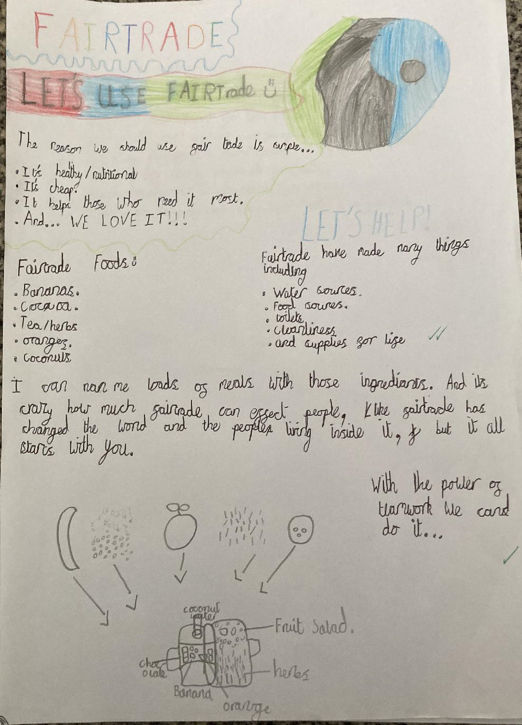 FAIRTRADE
LET'S USE FAIRTrade
The reason we should use fair tade is simple...
• It's healthy/nutritional
• It's cheap.
• It helps those who need it most.
• And... WE LOVE IT!!!
LET'S HELP!
Fairtrade Foods
• Bananas.
• Cocoa.
• Tea/herbs
• oranges.
• coconuts
Fairtrade have made many things
including
• Water sources.
• Food soures.
• toilets.
• cleanliness
• and supplies for life
I can nan me loads of meals with those ingrediants. And its
crazy how much fairtrade can effect people, like fairtrade has
changed the word and the people living inside it, but it all
stars with you.
With the power of
teamwork we cand
do it...
coconut
Fruit Salad.
choc
olate
herbs
Banana
orange